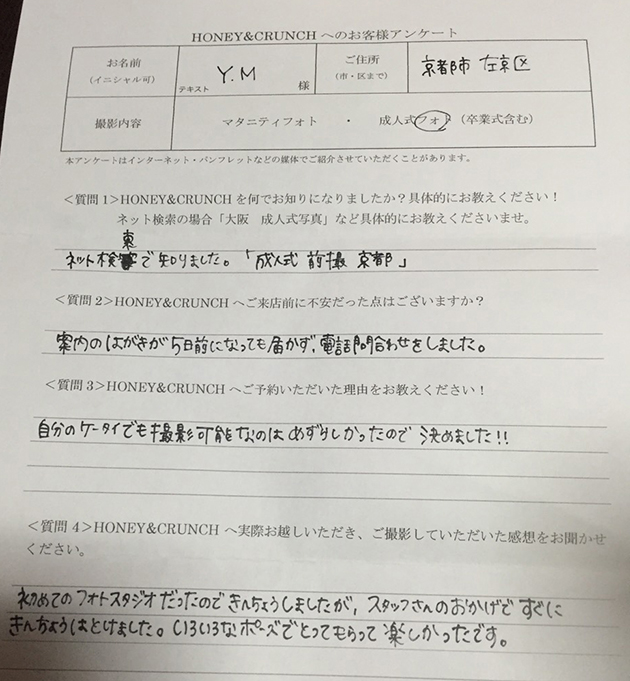 HONEY&CRUNCH へのお客様アンケート
お名前
(イニシャル可)
テキスト
Y.M
様
ご住所
(市・区まで)
京都市 左京区
撮影内容
マタニティフォト ・ 成人式フォト(卒業式含む)
本アンケートはインターネット・パンフレットなどの媒体でご紹介させていただくことがあります。
<質問 1>HONEY&CRUNCH を何でお知りになりましたか？具体的にお教えください！
ネット検索の場合「大阪 成人式写真」など具体的にお教えくださいませ。
ネット検 で知りました。「成人式 前撮 京都」
<質問 2>HONEY&CRUNCH へご来店前に不安だった点はございますか？
案内のはがきが5日前になっても届かず、電話問合わせをしました。
<質問 3>HONEY&CRUNCH へご予約いただいた理由をお教えください！
自分のケータイでも撮影可能なのはめずらしかったので 決めました!!
<質問 4>HONEY&CRUNCH へ実際お越しいただき、ご撮影していただいた感想をお聞かせ
ください。
初めてのフォトスタジオだったのできんちょうしましたが、スタッフさんのおかげですぐに
きんちょうはとけました。いろいろなポーズでとってもらって楽しかったです。